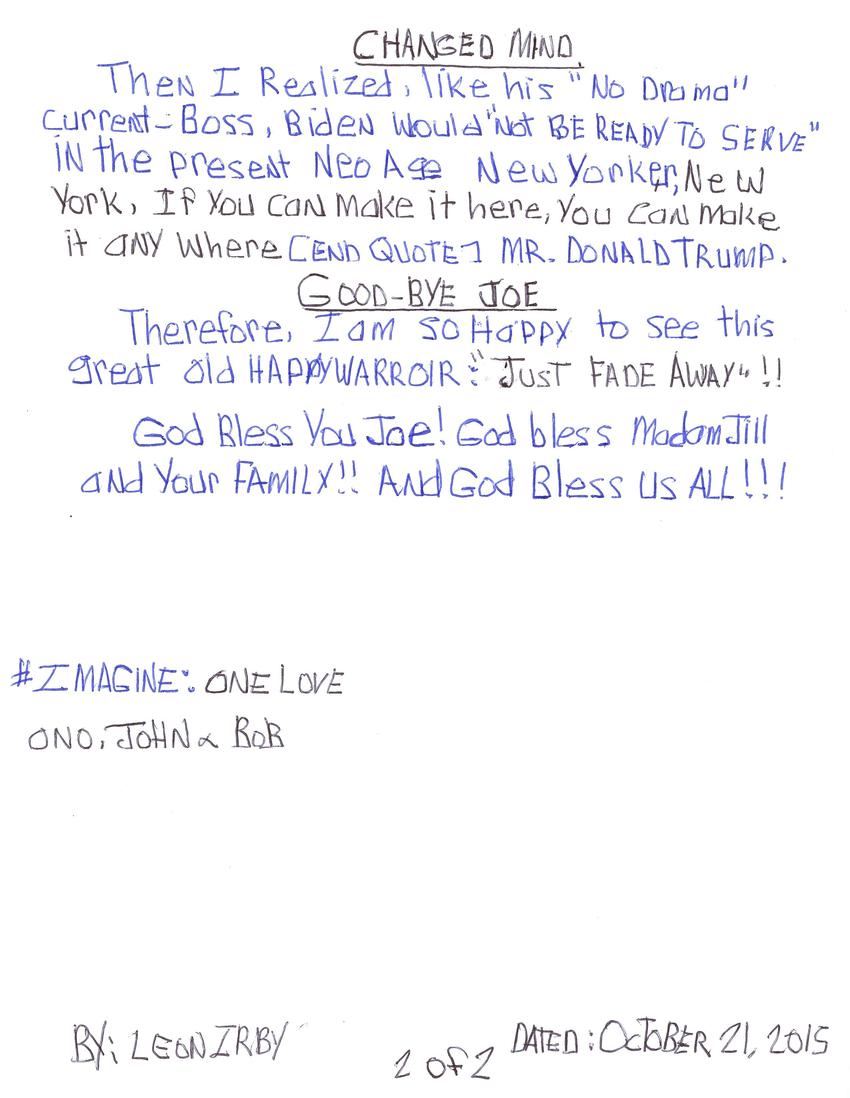 CHANGED MIND.
Then I Realized, like his "No Drama"
current-Boss, Biden would "Not BE READY TO SERVE"
IN the present Neo Age New Yorker, New
York, If You can make it here, you can make
it any where [END QUOTE] MR. DONALD TRUMP.
GOOD-BYE JOE
Therefore, I am SO HAPPY to see this
great old HAPPY WARROIR: "JUST FADE AWAY"!!
God Bless You Joe! God bless Madam Jill
and Your FAMILY!! And God Bless us ALL!!!
#IMAGINE: ONE LOVE
ONO, JOHN & BOB
BY: LEON IRBY
2 of 2
DATED: OCTOBER 21, 2015